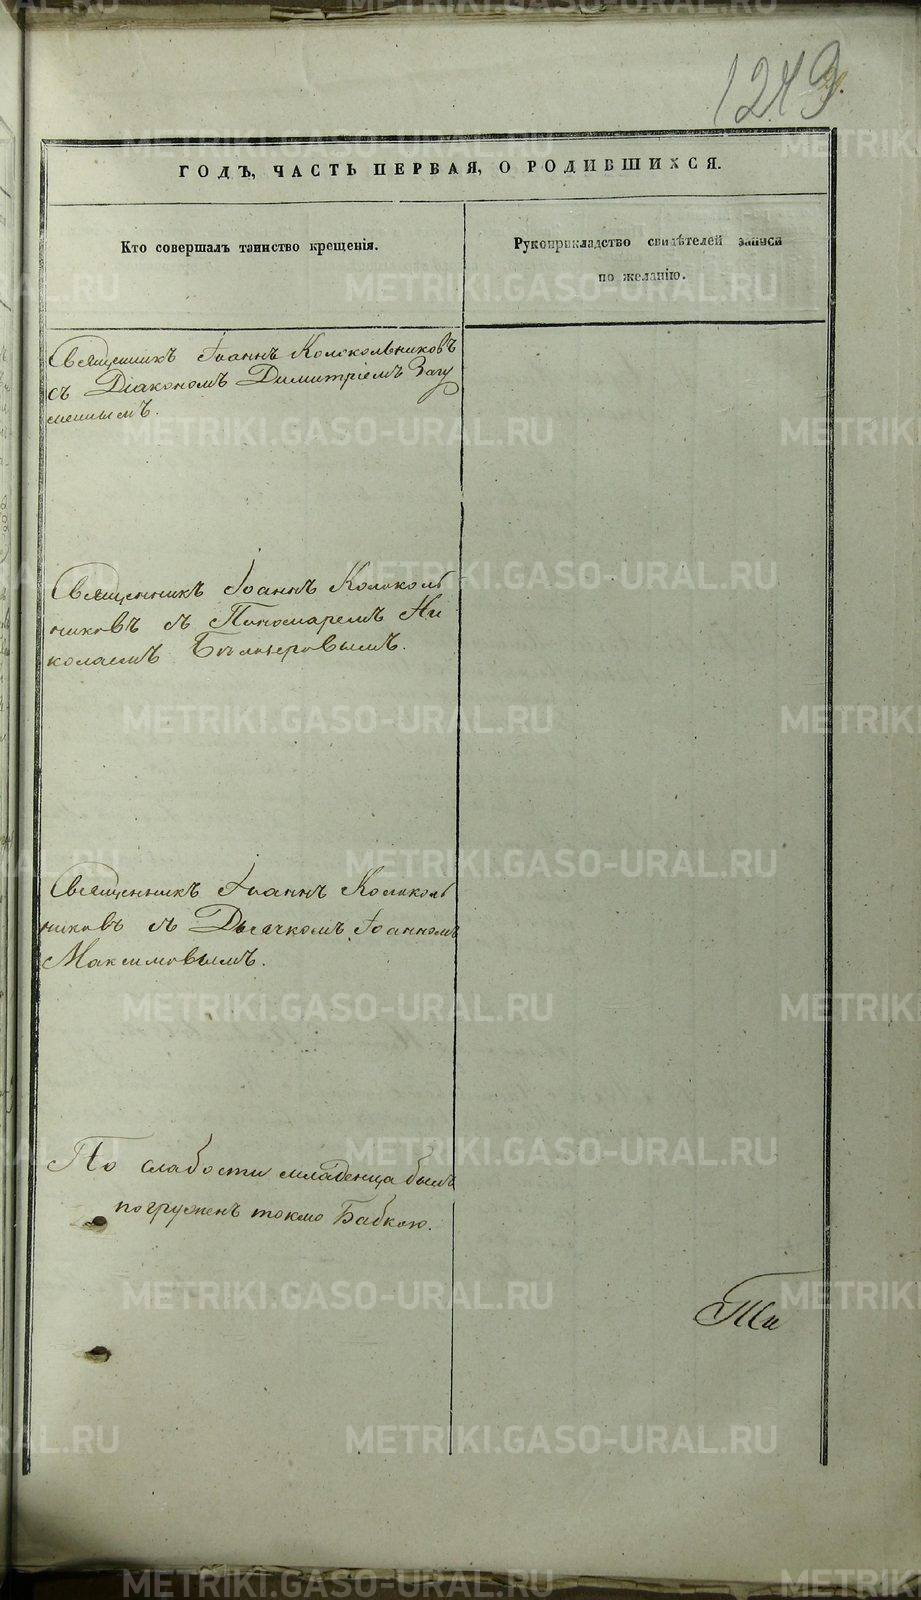 1243
ГОДЪ, ЧАСТЬ ПЕРВАЯ, О РОДИВШИХСЯ.
Кто совершалъ таинство крещенія.
Рукоприкладство свидѣтелей записи
по желанію.
Священникъ Іоаннъ Колокольниковъ
съ Діакономъ Димитріемъ Загу
меннымъ.
Священникъ Іоаннъ Колоколь
никовъ съ Пономаремъ Ни
колаемъ Бѣлозеровымъ.
Священникъ Іоаннъ Колоколь
никовъ съ Дьячкомъ Іоанномъ
Максимовымъ.
По слабости младенца былъ
погруженъ токмо Бабкою.
METRIKI.GASO-URAL.RU